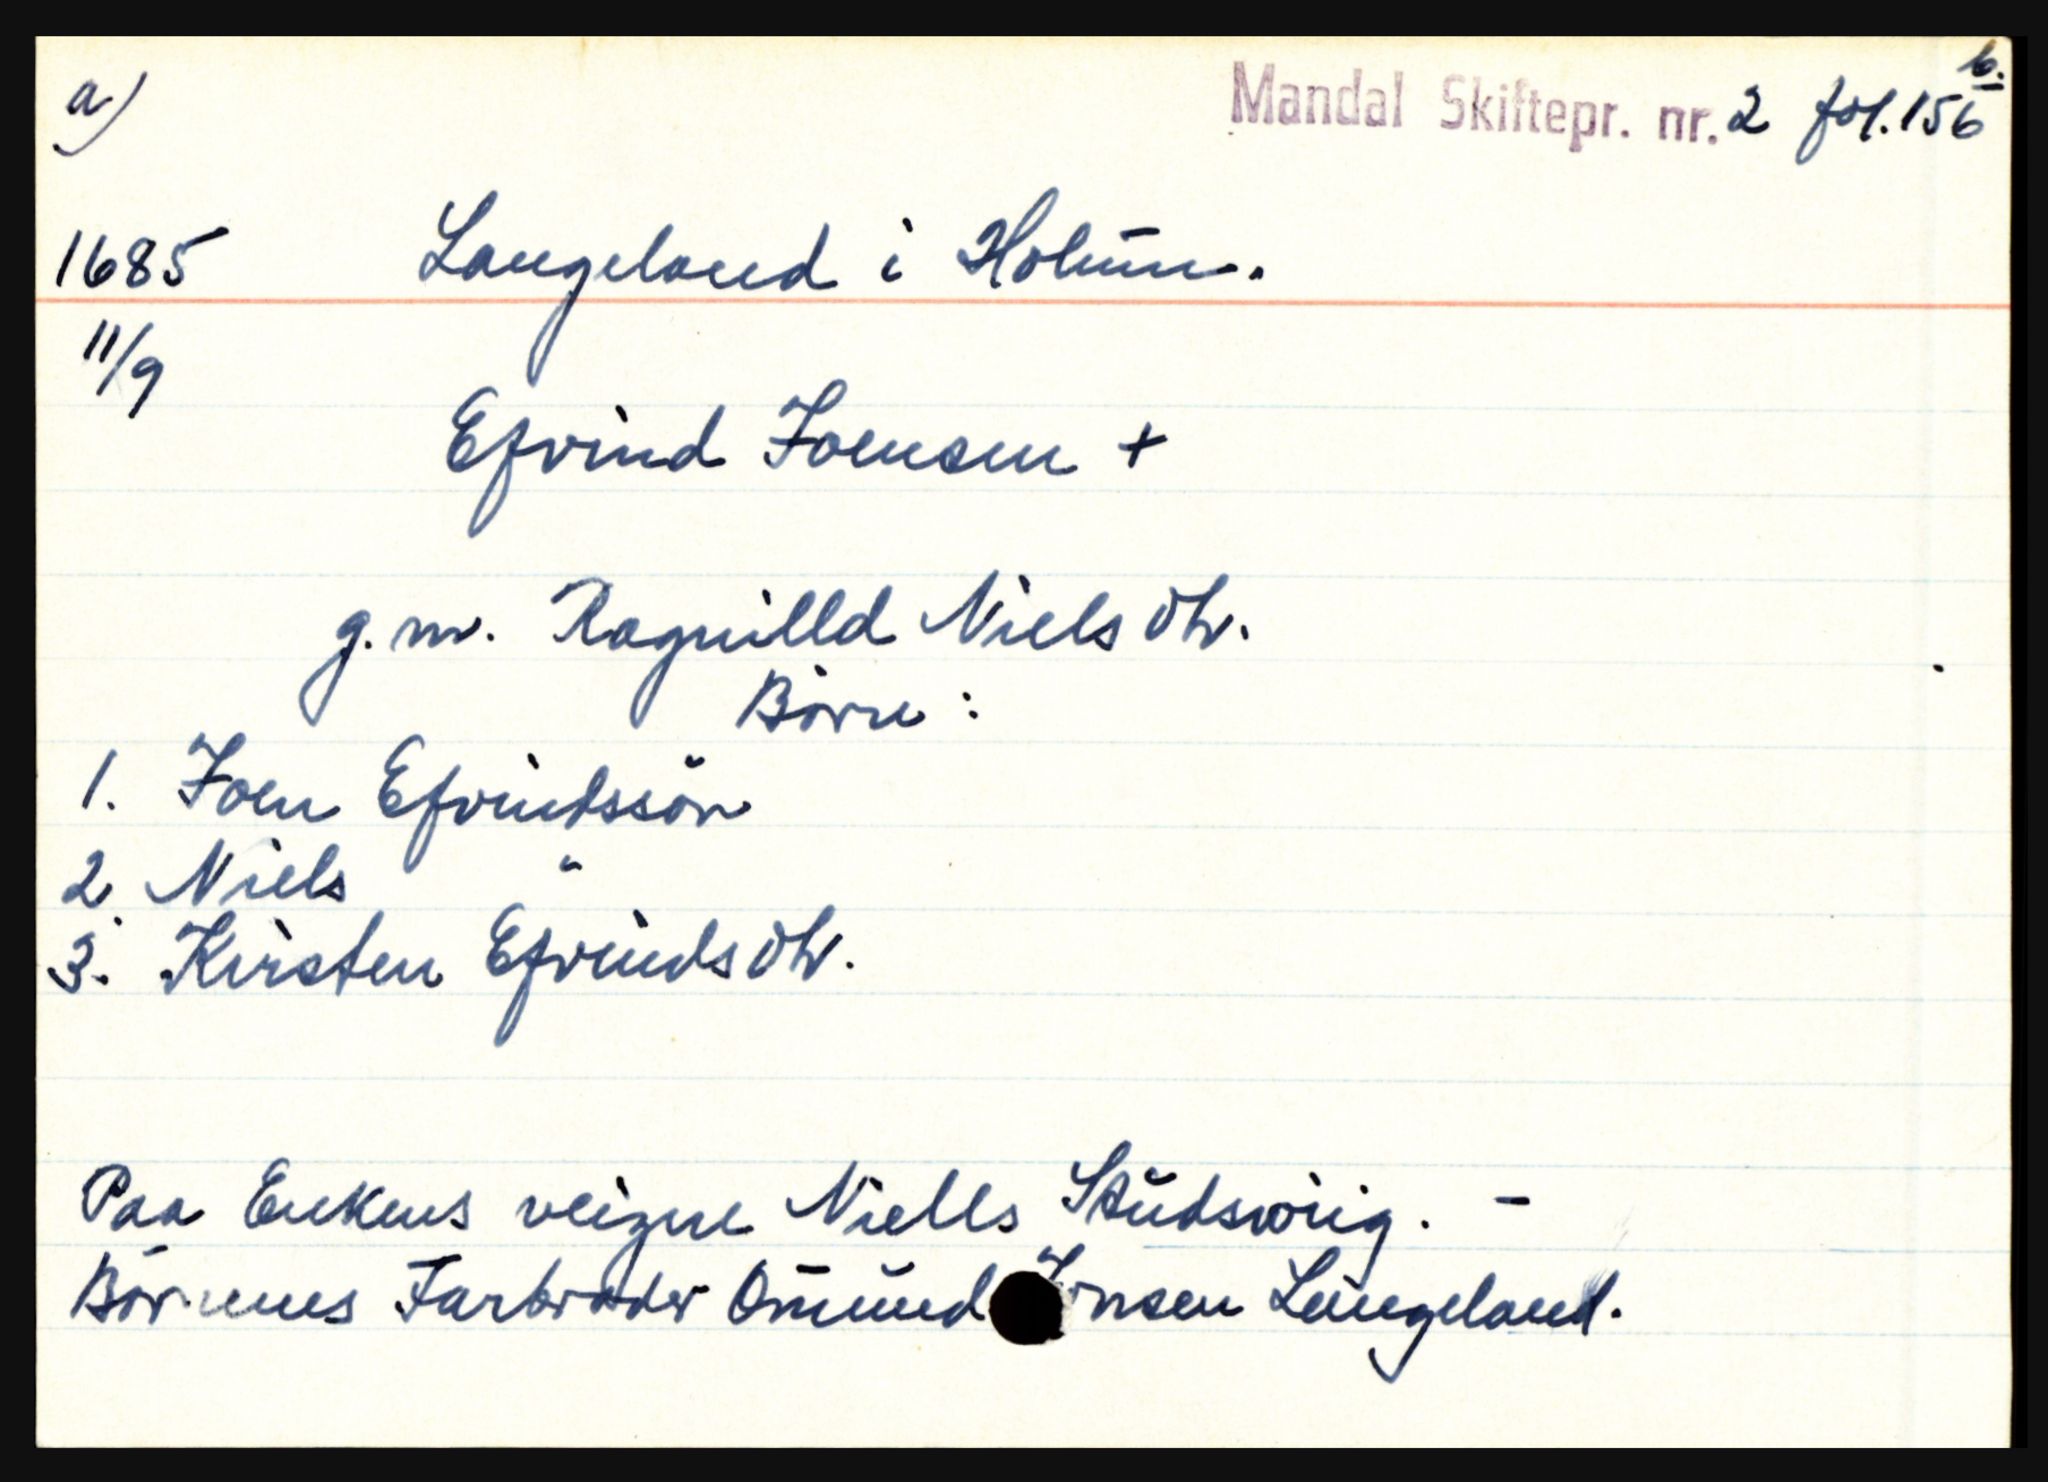 a)
Mandal Skiftepr. nr. 2 fol. 156 b.
1685 Langeland i Holum.
11/9
Efvind Joensen +
g. m. Ragnilld Nielsdtr.
Børn :
1. Joen Efvindssøn
2. Niels "
3. Kirsten Efvindsdtr.
Paa Enkens veigne Niells Studsvig. -
Børnenes Farbroder Omund Jonsen Langeland.